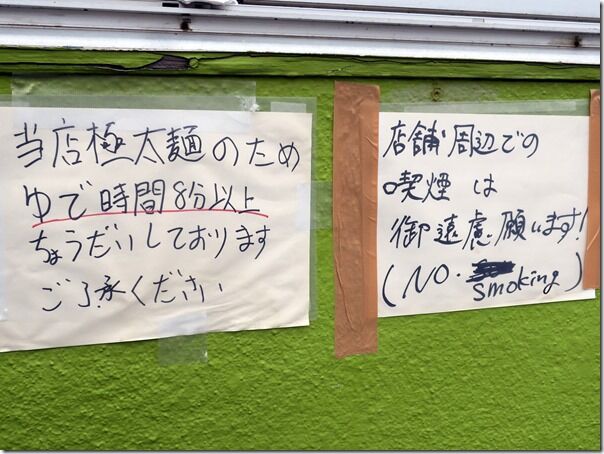 当店極太麺のため
ゆで時間8分以上
ちょうだいしております
ご了承ください
店舗周辺での
喫煙は
御遠慮願います!
(NO.smoking)